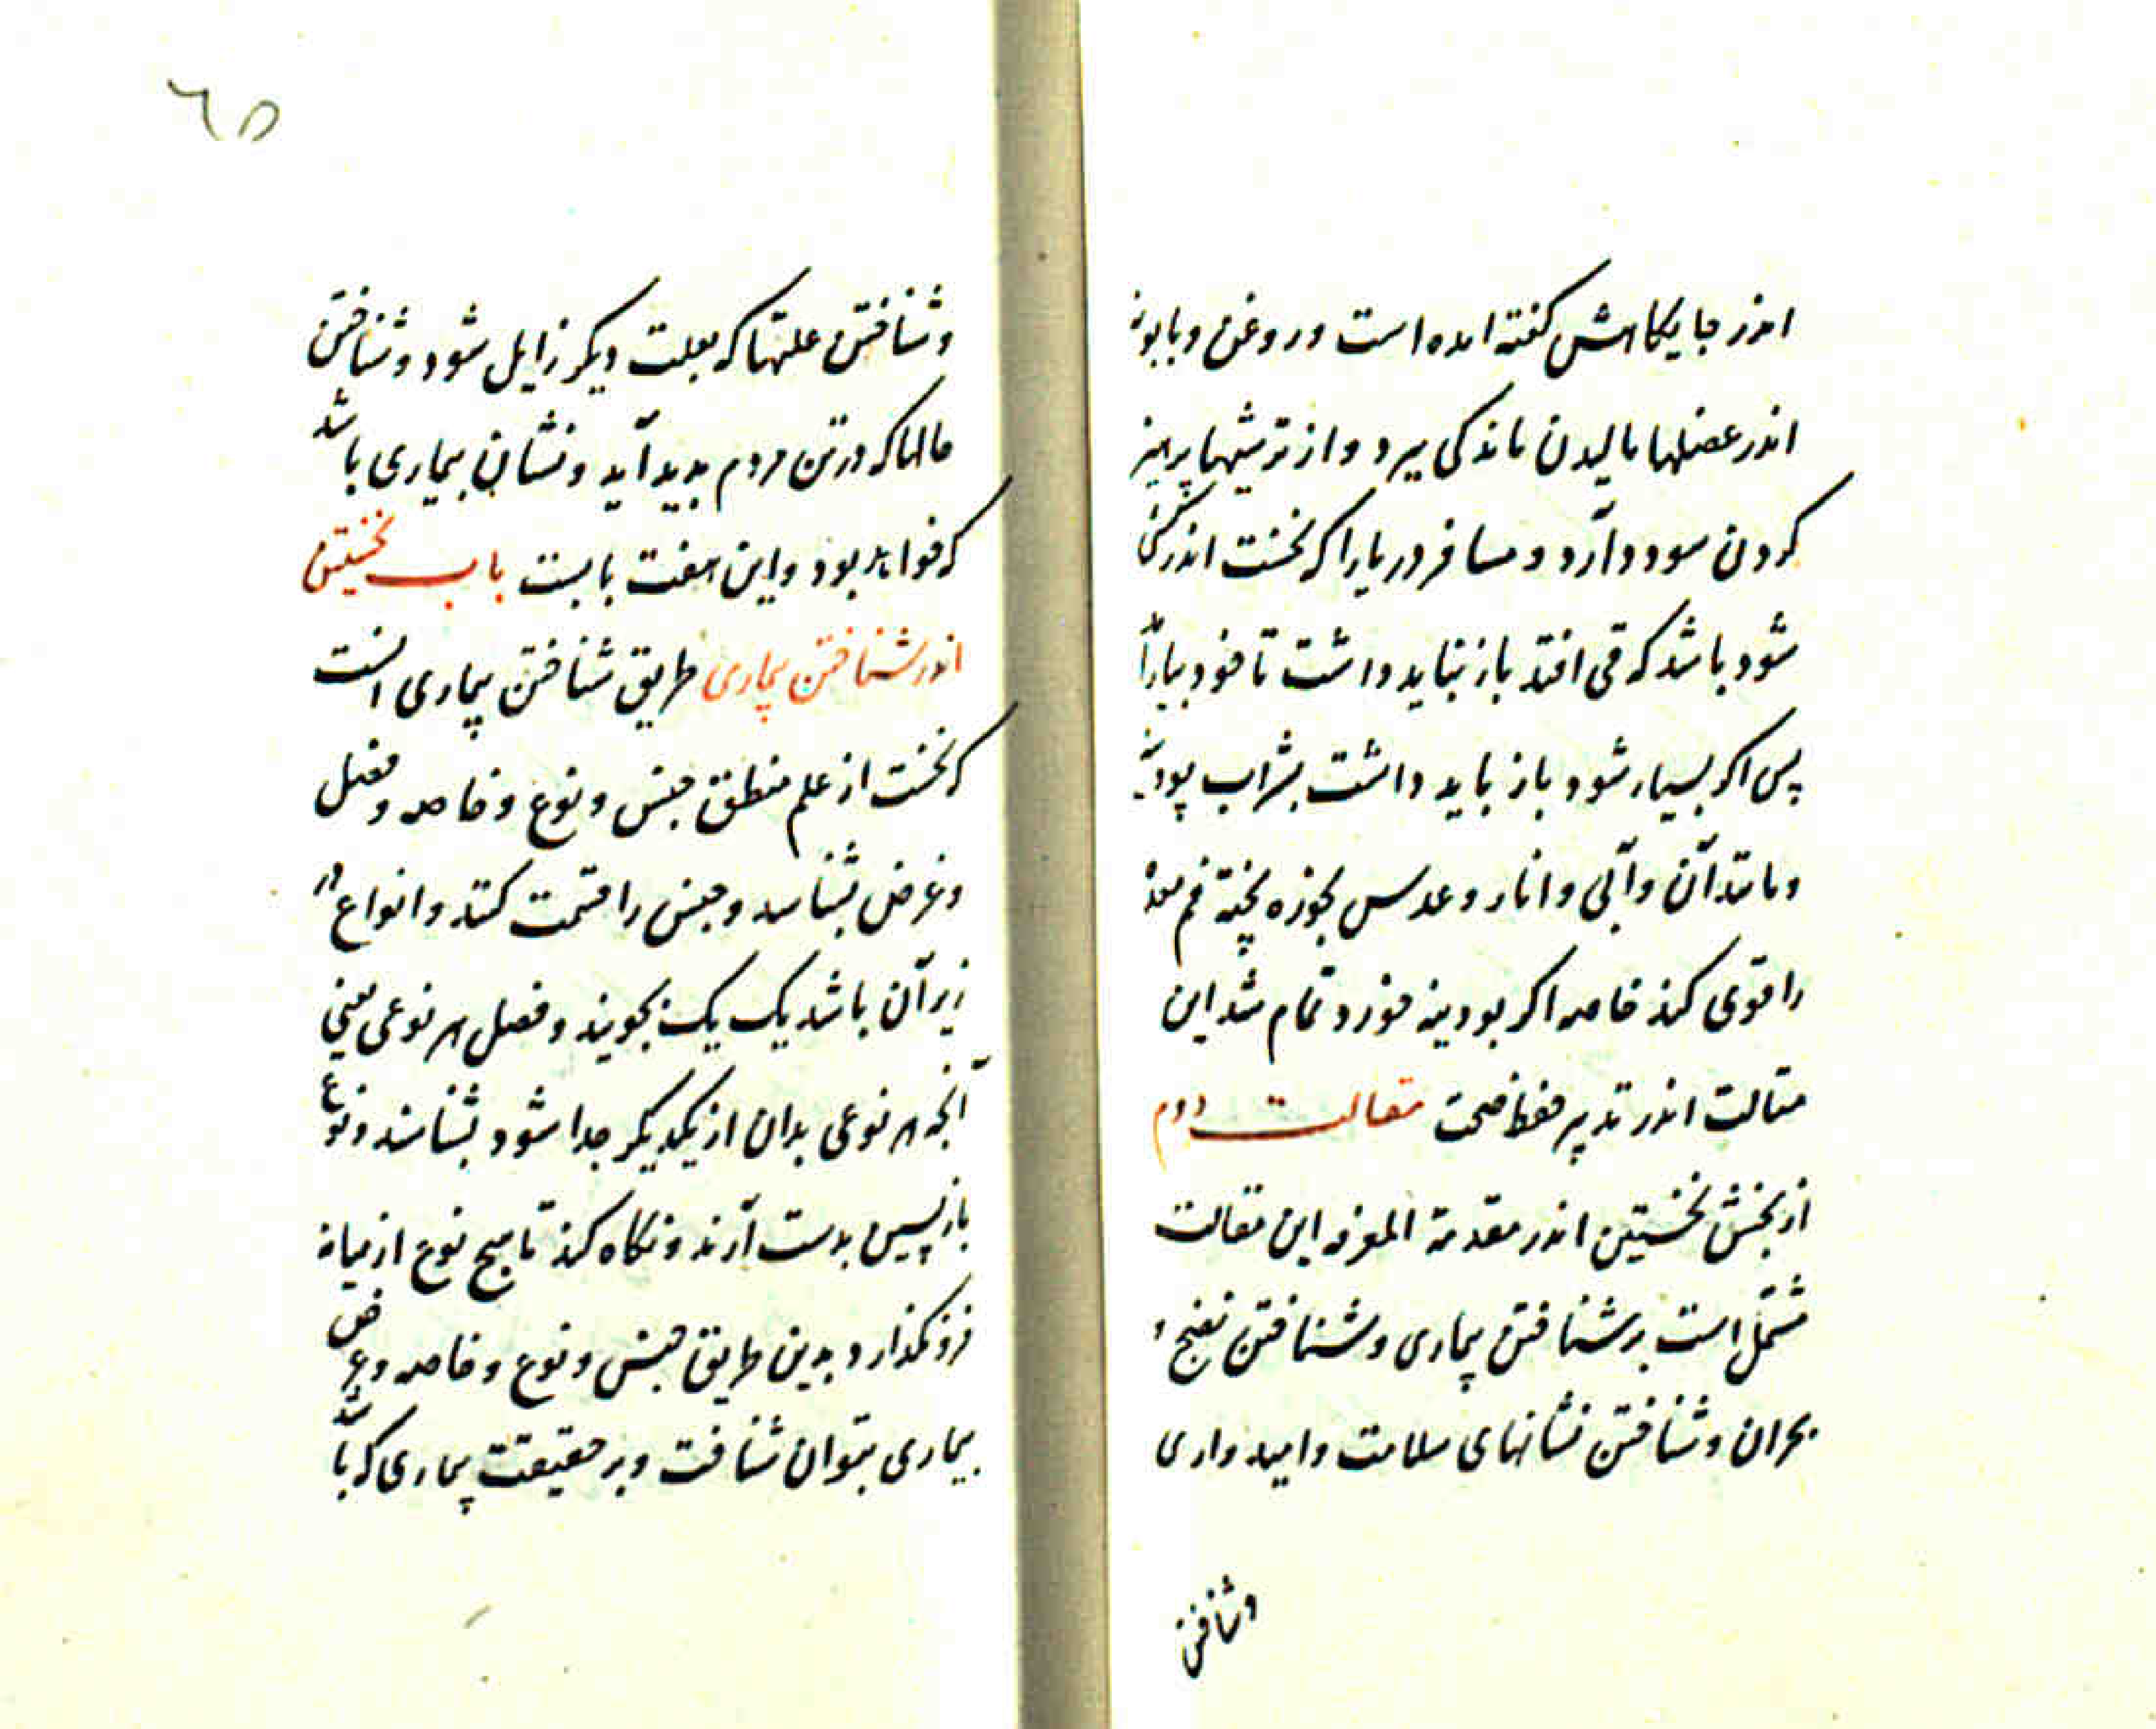 اندر جایکاهش کفته امده است و روغن و بابونه
اندر عضلها مالیدن ماندکی ببرد و از ترشیها پرهیز
کردن سود دارد و مسافر دریا را که نخست اندر کشتی
شود باشد که قی افتد باز نباید داشت تا خود بیارآمد
پس اکر بسیار شود باز باید داشت بشراب پودینه
و مانند آن و آبی و انار و عدس بخوزه پخته فم معده
را قوی کند خاصه اکر بودینه خورد تمام شد این
مقالت اندر تدبیر حفظ صحت مقالت دوم
از بخش نخستین اندر مقدمة المعرفه این مقالت
مشتمل است بر شناختن بیماری و شناختن نضج و
بحران و شناختن نشانهای سلامت و امیدواری
و شناختن
٦٥
و شناختن علتها که بعلت دیکر زایل شود و شناختن
حالها که در تن مردم بدید آید و نشان بیماری باشد
که خواهد بود و این هفت بابست باب نخستین
اندر شناختن بیماری طریق شناختن بیماری انست
که نخست از علم منطق جنس و نوع و خاصه و فصل
و عرض بشناسد و جنس را قسمت کنند و انواع در
زیر آن باشد یک یک بجویند و فصل هر نوعی یعنی
آنجه هر نوعی بدان از یکدیکر جدا شود بشناسند و نوع
بازپسین بدست آرند و نکاه کند تا هیج نوع از میانه
فرو نکذارد بدین طریق جنس و نوع و خاصه و عرض
بیماری بتوان شناخت و بر حقیقت بیماری که باشد